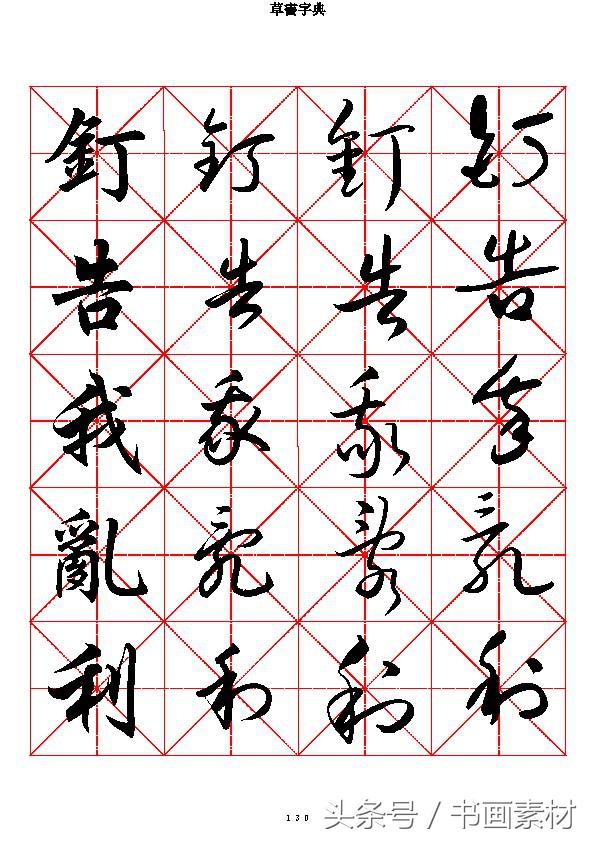 草書字典
釘 釘 釘 釘
告 告 告 告
我 我 我 我
亂 亂 亂 亂
利 利 利 利
130
头条号 / 书画素材